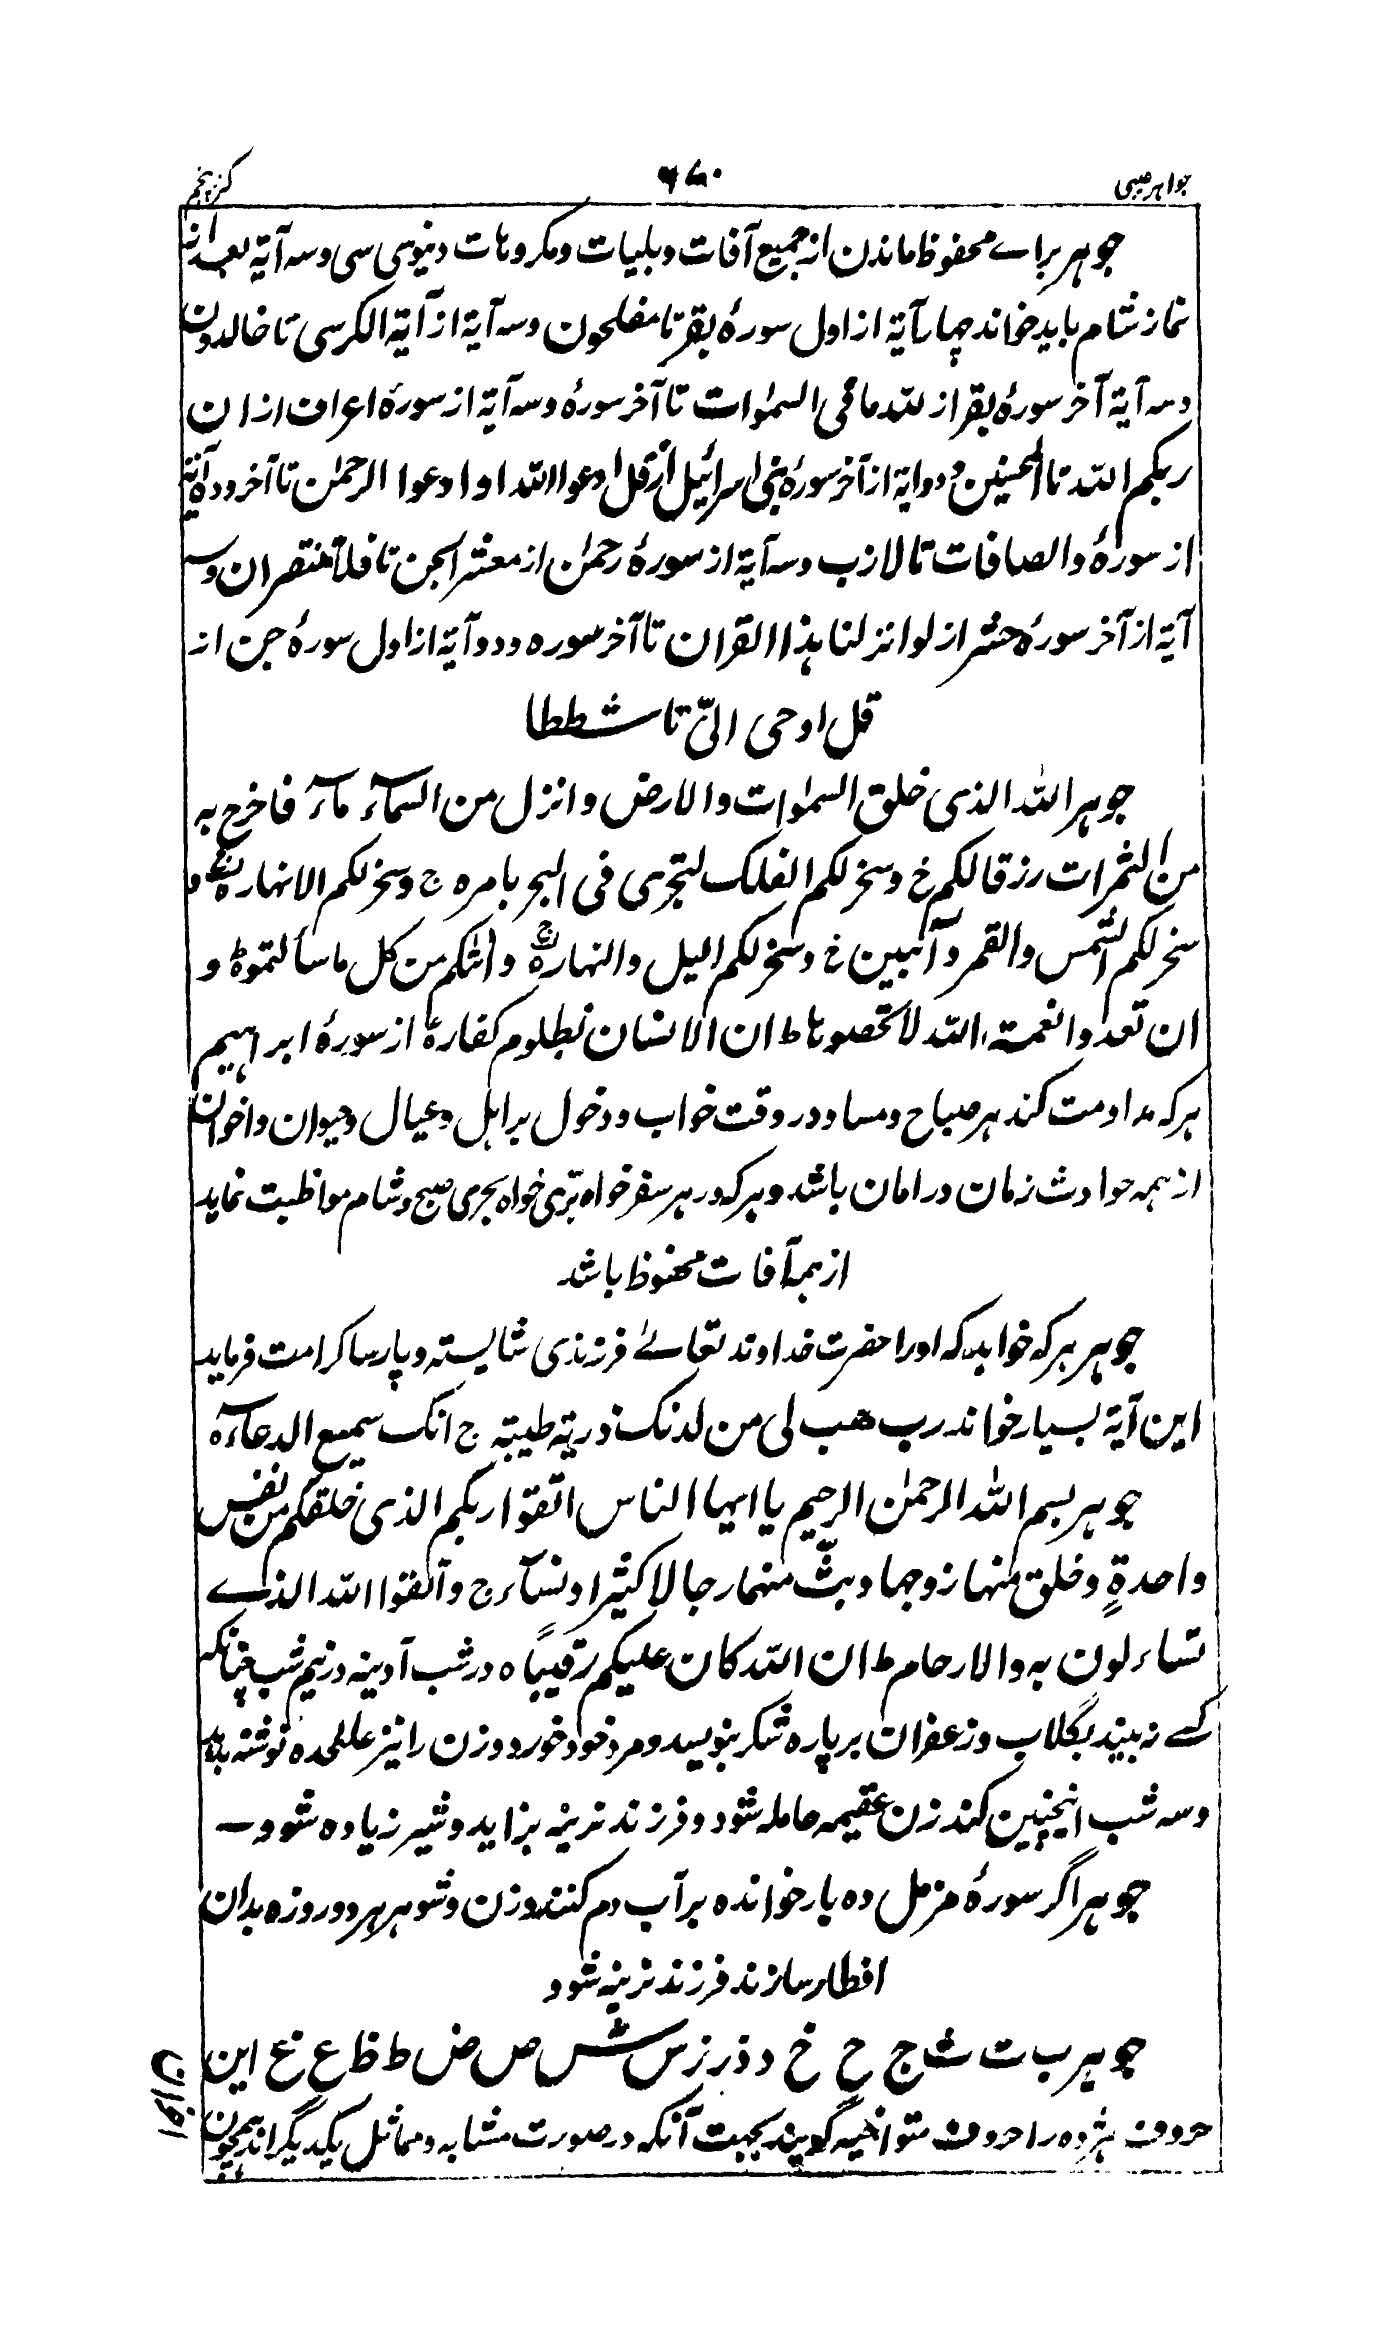 جواہر صبی
۶۷۰
کنز پنجم
جوہر براے محفوظ ماندن از جمیع آفات و بلیات و مکروہات دنیوی سی و سہ آیة بعد از
نماز شام باید خواند چہار آیة از اول سورۂ بقر تا مفلحون و سہ آیة از آیة الکرسی تا خالدون
و سہ آیة آخر سورۂ بقر از للہ ما فی السمٰوات تا آخر سورۂ و سہ آیة از سورۂ اعراف از ان
ربکم اللہ تا المحسنین و دو ایة از آخر سورۂ بنی اسرائیل از قل ادعوا اللہ او ادعوا الرحمٰن تا آخر و دہ آیة
از سورۂ والصافات تا لازب و سہ آیة از سورۂ رحمٰن از معشر الجن تا فلا تنتصران و سہ
آیة از آخر سورۂ حشر از لو انزلنا ہذا القران تا آخر سورہ و دو آیة از اول سورۂ جن از
قل اوحی الیّ تا شططا
جوہر اللہ الذی خلق السمٰوات والارض و انزل من السمآء مآء فاخرج بہ
من الثمرات رزقا لکم ج و سخر لکم الفلک لتجری فی البحر بامرہ ج و سخر لکم الانہارہ و
سخر لکم الشمس والقمر دآئبین ج و سخر لکم الیل والنہارہ و اتٰکم من کل ما سألتموہ ط و
ان تعدوا نعمة اللہ لا تحصوہا ط ان الانسان لظلوم کفارہ از سورۂ ابراہیم
ہر کہ مداومت کند ہر صباح و مسا و در وقت خواب و دخول بر اہل و عیال و حیوان و اخوان
از ہمہ حوادث زمان در امان باشد و ہر کہ در ہر سفر خواہ بری خواہ بحری صبح و شام مواظبت نماید
از ہمہ آفات محفوظ باشد
جوہر ہر کہ خواہد کہ اورا حضرت خداوند تعالےٰ فرزندی شایستہ و پارسا کرامت فرماید
این آیة بسیار خواند رب ھب لی من لدنک ذریة طیبة ج انک سمیع الدعآءہ
جوہر بسم اللہ الرحمٰن الرحیم یا ایہا الناس اتقوا ربکم الذی خلقکم من نفس
واحدةٍ و خلق منہا زوجہا و بثّ منہما رجالا کثیرا و نسآء ج و اتقوا اللہ الذے
تساءلون بہ والارحام ط ان اللہ کان علیکم رقیباً ہ در شب آدینہ در نیم شب چنانکہ
کسے نہ بیند بگلاب و زعفران بر پارہ شکر بنویسد و مرد خود خورد و زن را نیز علٰیحدہ نوشتہ بدہد
و سہ شب اینچنین کند زن عقیمہ حاملہ شود و فرزند نرینہ بزاید و شیر زیادہ شود ـ
جوہر اگر سورۂ مزمل دہ بار خواندہ بر آب دم کنند و زن و شوہر ہر دو روزہ بدان
افطار سازند فرزند نرینہ شود
جوہر ب ت ث ج ح خ د ذ ر ز س ش ص ض ط ظ ع غ این
حروف ہژدہ را حروف متواخیہ گویند بجہت آنکہ در صورت مشابہ و مماثل یکدیگر اند ہمچون
اخوان